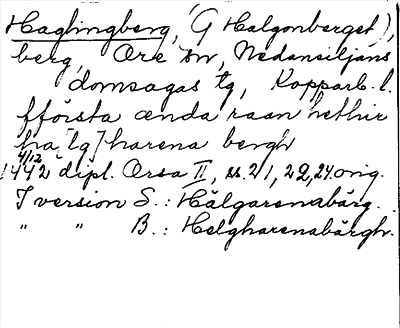 Haglingberg, (G Halgonberget),
berg, Ore sn, Nedansiljans
domsagas tg, Kopparb. l.
fförsta ænda raan hethir
ha[lg]harena bergh
4/12
1442 dipl. Orsa II, s. 21, 22, 24. orig.
I version S.: Hälgarenabärg.
" " B.: Helgharenabärgh.